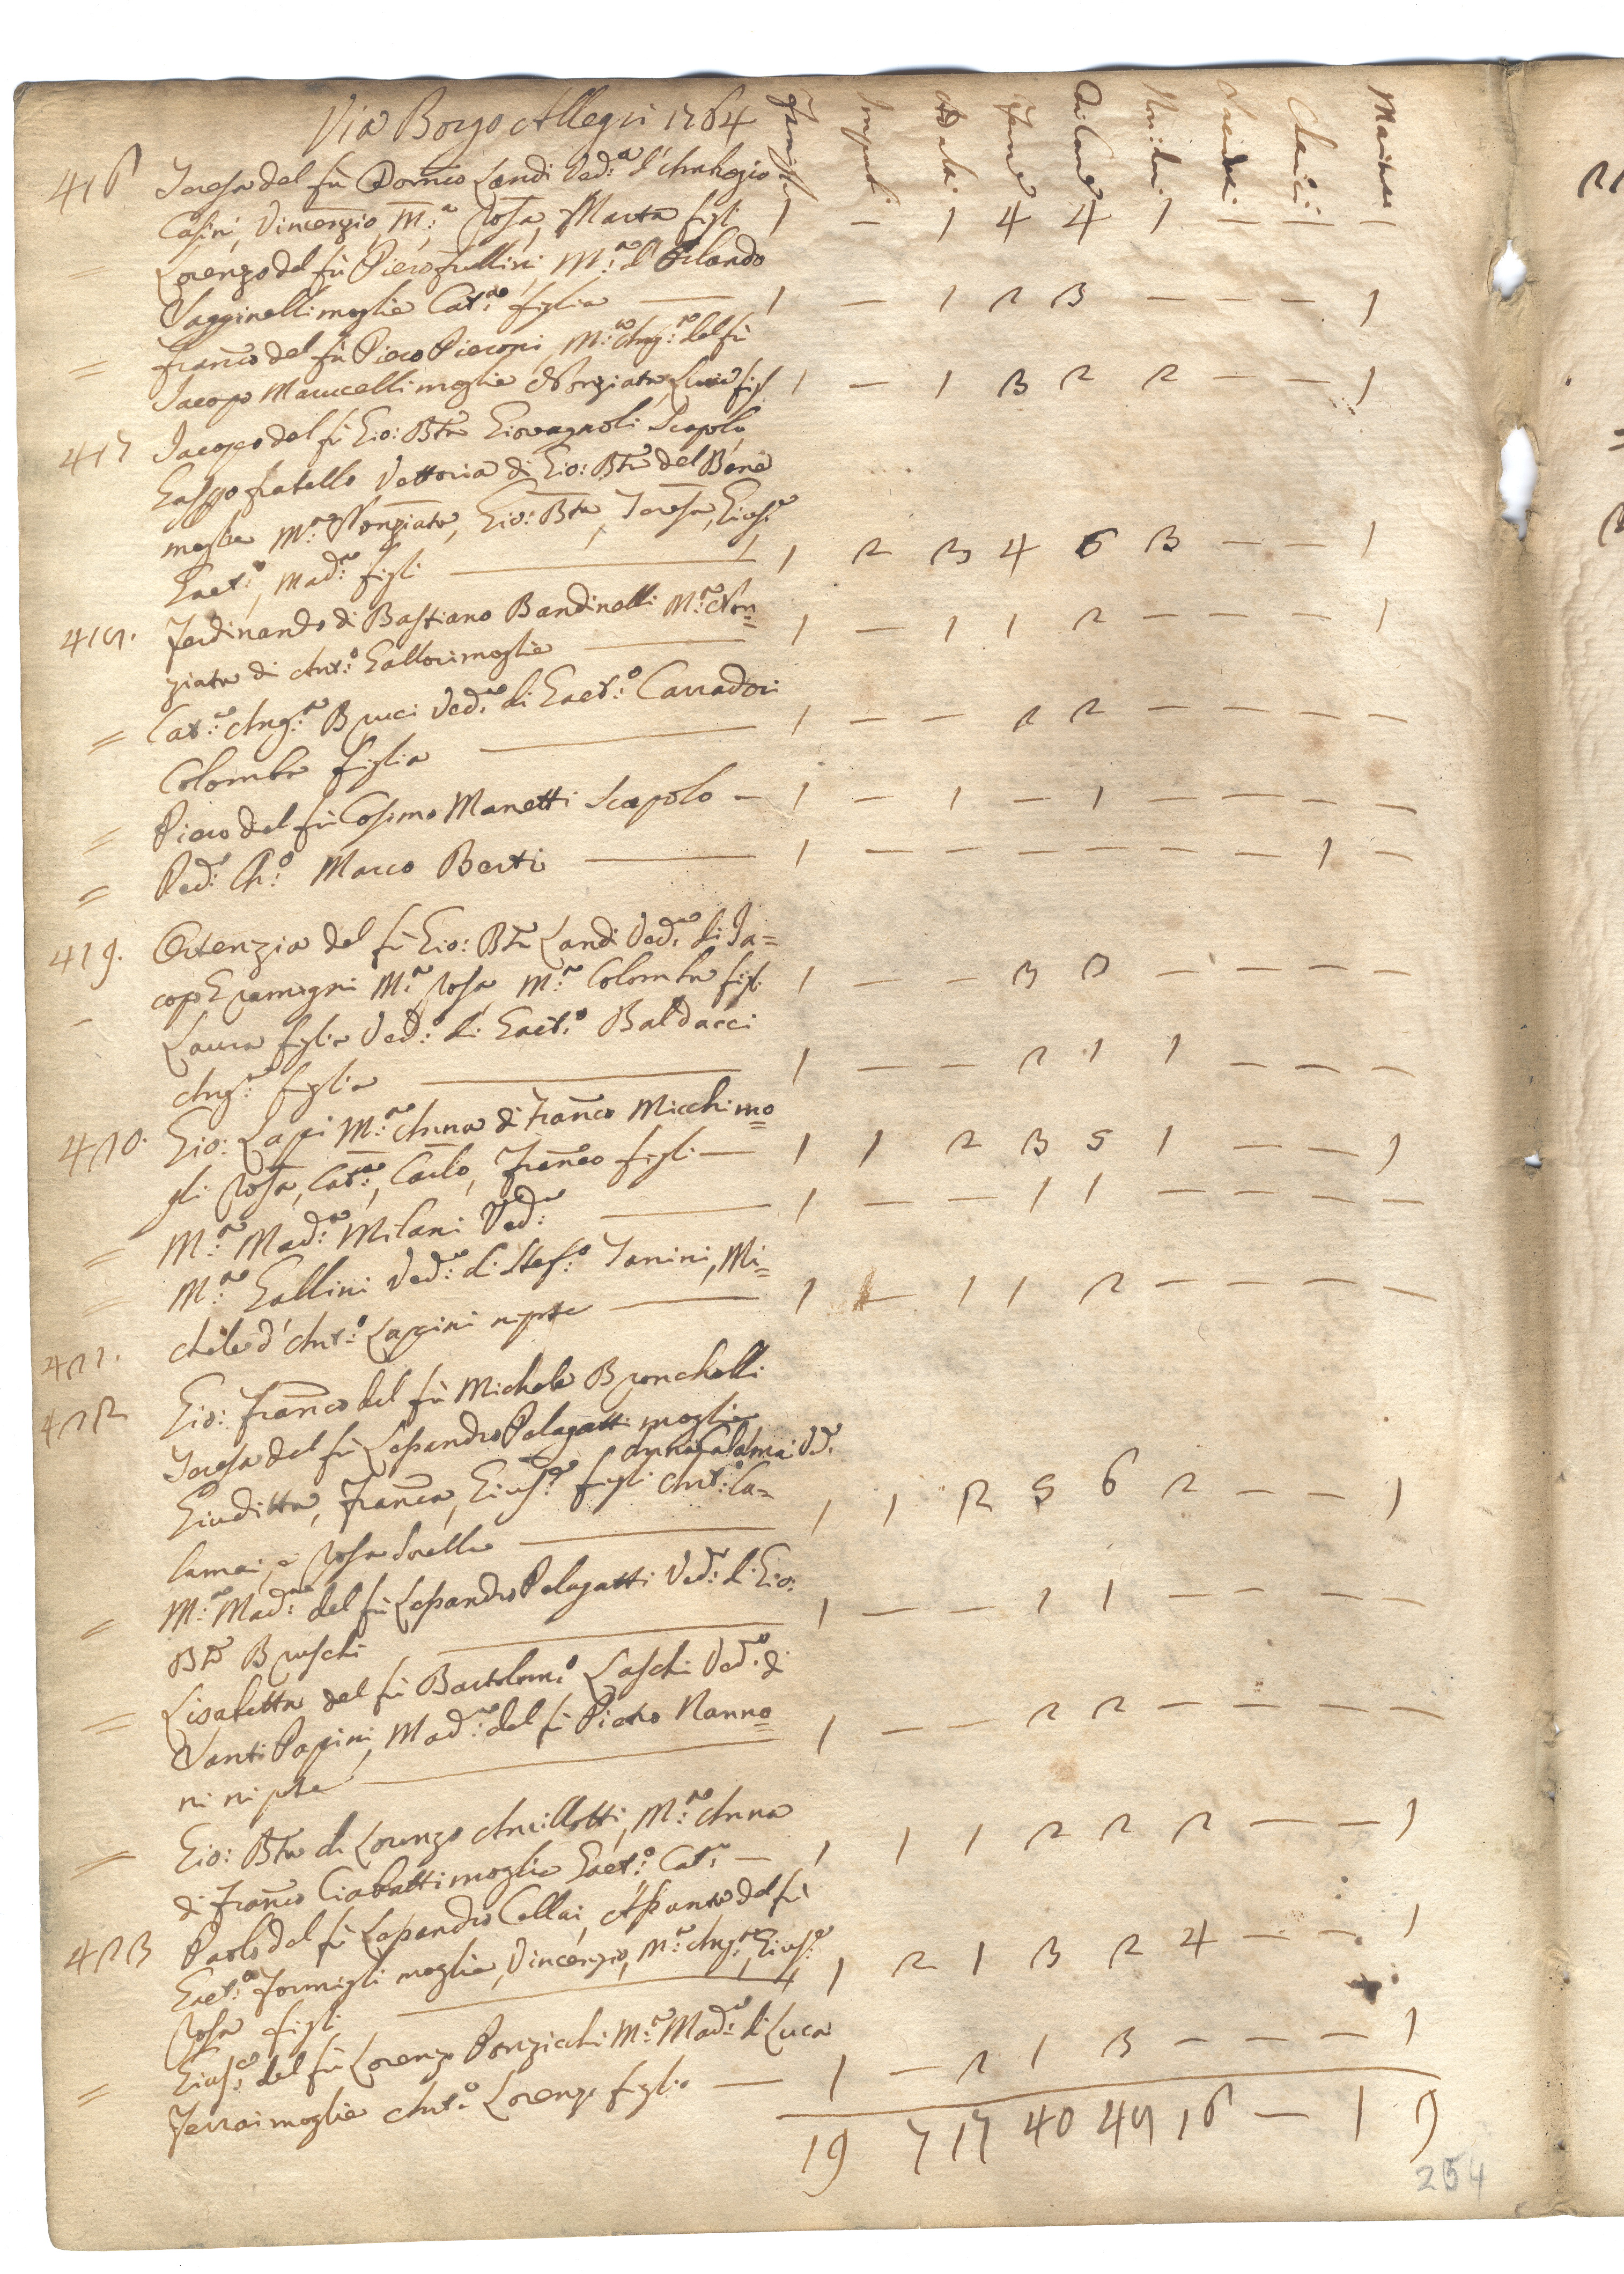 Via Borgo Allegri 1764
416 Teresa del fù Domco Landi Ved:a d'Ambrogio
Casini, Vincenzio, M:a Rosa, Marta figli 1 — 1 4 4 1 — — —
Lorenzo del fù Piero frullini, M:a d'Orlando
Vagginelli moglie Cat:a figlia — 1 — 1 2 3 — — — 1
= Franco del fù Piero Pieroni, M:a Ang:a del fù
Jacopo Marucelli moglie Nonziata, figl 1 — 1 3 2 2 — — 1
417 Jacopo del fù Gio: Bta Giovagnoli Scapolo
fratello Vettoria di Gio: Bta del Bene
moglie M:a Nonziata, Gio: Bta, Teresa, Gius:e
Gaet:o, Mad:a figli — 1 2 3 4 6 3 — — 1
418. Ferdinando di Bastiano Bandinelli M:a Non=
ziata di Ant:o Gallori moglie — 1 — 1 1 2 — — — 1
= Cat:a Ang:a Brucci Ved:a di Gaet:o Carradori
Colomba figlia — 1 — — 2 2 — — — —
= Piero del fù Cosimo Manetti Scapolo — 1 — 1 — 1 — — — —
= Red: Ch:o Marco Berti — 1 — — — — — — 1 —
419. Ortenzia del fù Gio: Bta Landi Ved:a di Ja=
copo M:a Rosa, M:a Colomba figl: 1 — — 3 3 — — — —
- Laura figlia Ved:a di Gaet:o Baldacci
Ang:a figlia — 1 — — 2 1 1 — — —
420. Gio: Lapi M:a Anna di Franco Micchi mo=
gli Rosa, Cat:a, Carlo, Franco figli — 1 1 2 3 5 1 — — 1
= M:a Mad:a Milani Ved:a — 1 — — 1 1 — — — —
M:a Gallini Ved:a di Stef:o Tanini, Mi=
chele d'Ant:o Lapini nipote — 1 — 1 1 2 — — — —
421.
422 Gio: Franco del fù Michele Bronchelli
Teresa del fù Lessandro Pelagatti moglie
Anna Calamai Vd:a
Giuditta, Franca, Gius:e figli Ant:o Ca=
lamai, e Rosa sorella — 1 1 2 5 6 2 — — 1
= M:a Mad:a del fù Lessandro Pelagatti Ved:a di Gio:
Bta Bruschi — 1 — — 1 1 — — — —
= Lisabetta del fù Bartolom:o Laschi Ved:a di
Santi Papini, Mad:a del fù Pietro Nanno=
ni nipote — 1 — — 2 2 — — — —
= Gio: Bta di Lorenzo Ancillotti, M:a Anna
di Franco Ciabatti moglie Gaet:o Cat:a — 1 1 1 2 2 2 — — 1
423 Paolo del fù Lessandro Cellai, Assunta del fù
Gaet:o Formigli moglie, Vincenzio, M:a Ang:a, Gius:e
Rosa figli — 1 2 1 3 2 4 — — 1
= Gius:e del fù Lorenzo Ponzicchi M:a Mad:a di Luca
Ferrai moglie Ant:o Lorenzo figlio — 1 — 2 1 3 — — — 1
19 7 17 40 49 16 — 1 9
254